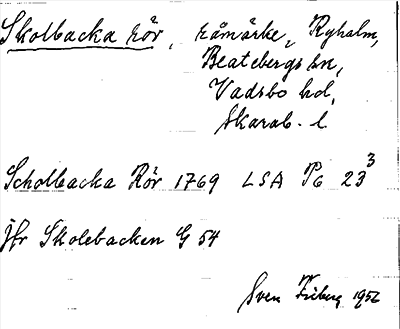 Skolbacka rör, råmärke, Ryholm,
Beatebergs sn,
Vadsbo hd,
Skarab. l.
Scholbacka Rör 1769 LSA P6 23³
jfr Skolebacken G 54
Sven Friberg 1952